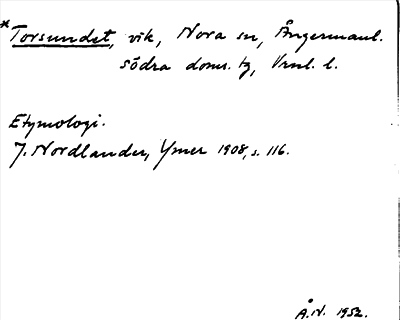 *Torsundet, vik, Nora sn, Ångermanl.
södra doms. tg, Vrnl. l.
Etymologi.
J. Nordlander, Ymer 1908, s. 116.
Å.N. 1952.